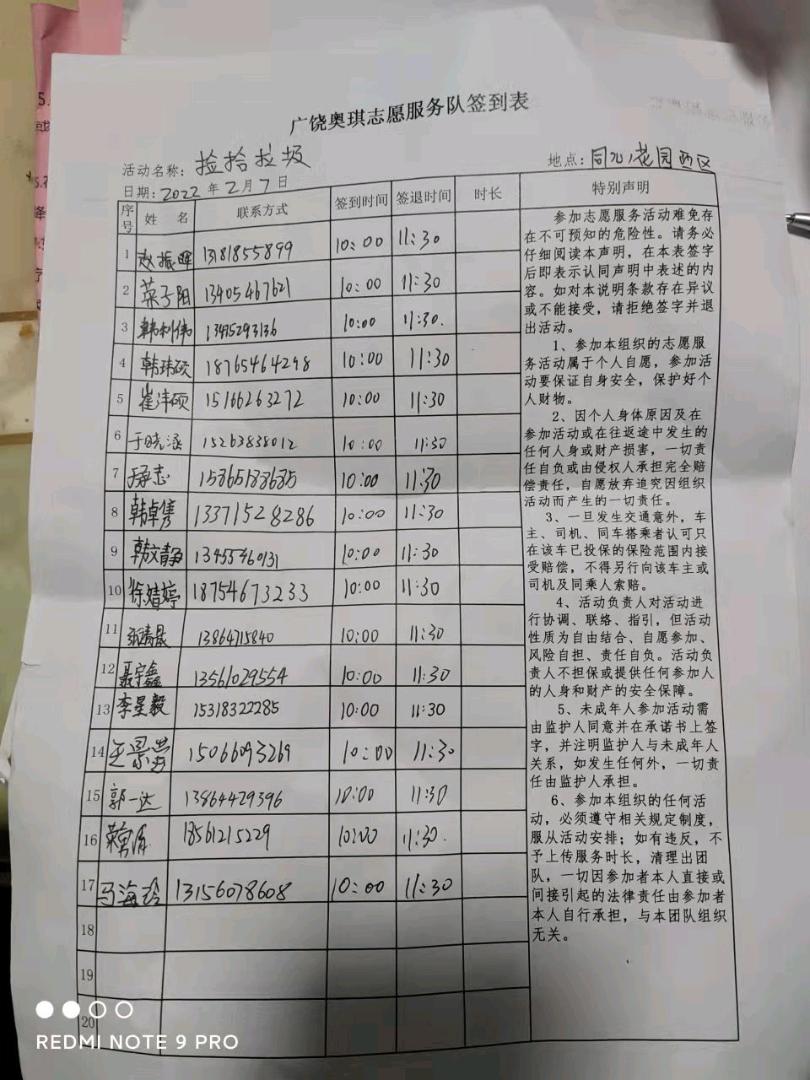 广饶奥琪志愿服务队签到表
活动名称：捡拾垃圾
地点：同心花园西区
日期：2022年2月7日
序号 姓 名 联系方式 签到时间 签退时间 时长 特别声明
1 赵振晖 10:00 11:30
2 荣子阳 13405467621 10:00 11:30
3 韩利伟 13475293136 10:00 11:30.
4 韩玮硕 18765464298 10:00 11:30
5 崔沣硕 15166263272 10:00 11:30
6 于晓涵 15263838012 10:00 11:30
7 15365133635 10:00 11:30
8 韩卓隽 13371528286 10:00 11:30
9 韩文静 13455460131 10:00 11:30
10 徐婧婷 18754673233 10:00 11:30
11 13864715840 10:00 11:30
12 聂宇鑫 13561029554 10:00 11:30
13 李星毅 15318322285 10:00 11:30
14 15066093269 10:00 11:30
15 郭一达 13864429396 10:00 11:30
16 18561215229 10:00 11:30.
17 马海玲 13156078608 10:00 11:30
18
19
20
参加志愿服务活动难免存
在不可预知的危险性。请务必
仔细阅读本声明，在本表签字
后即表示认同声明中表述的内
容。如对本说明条款存在异议
或不能接受，请拒绝签字并退
出活动。
1、参加本组织的志愿服
务活动属于个人自愿，参加活
动要保证自身安全，保护好个
人财物。
2、因个人身体原因及在
参加活动或在往返途中发生的
任何人身或财产损害，一切责
任自负或由侵权人承担完全赔
偿责任，自愿放弃追究因组织
活动而产生的一切责任。
3、一旦发生交通意外，车
主、司机、同车搭乘者认可只
在该车已投保的保险范围内接
受赔偿，不得另行向该车主或
司机及同乘人索赔。
4、活动负责人对活动进
行协调、联络、指引，但活动
性质为自由结合、自愿参加、
风险自担、责任自负。活动负
责人不担保或提供任何参加人
的人身和财产的安全保障。
5、未成年人参加活动需
由监护人同意并在承诺书上签
字，并注明监护人与未成年人
关系，如发生任何外，一切责
任由监护人承担。
6、参加本组织的任何活
动，必须遵守相关规定制度，
服从活动安排；如有违反，不
予上传服务时长，清理出团
队，一切因参加者本人直接或
间接引起的法律责任由参加者
本人自行承担，与本团队组织
无关。
REDMI NOTE 9 PRO